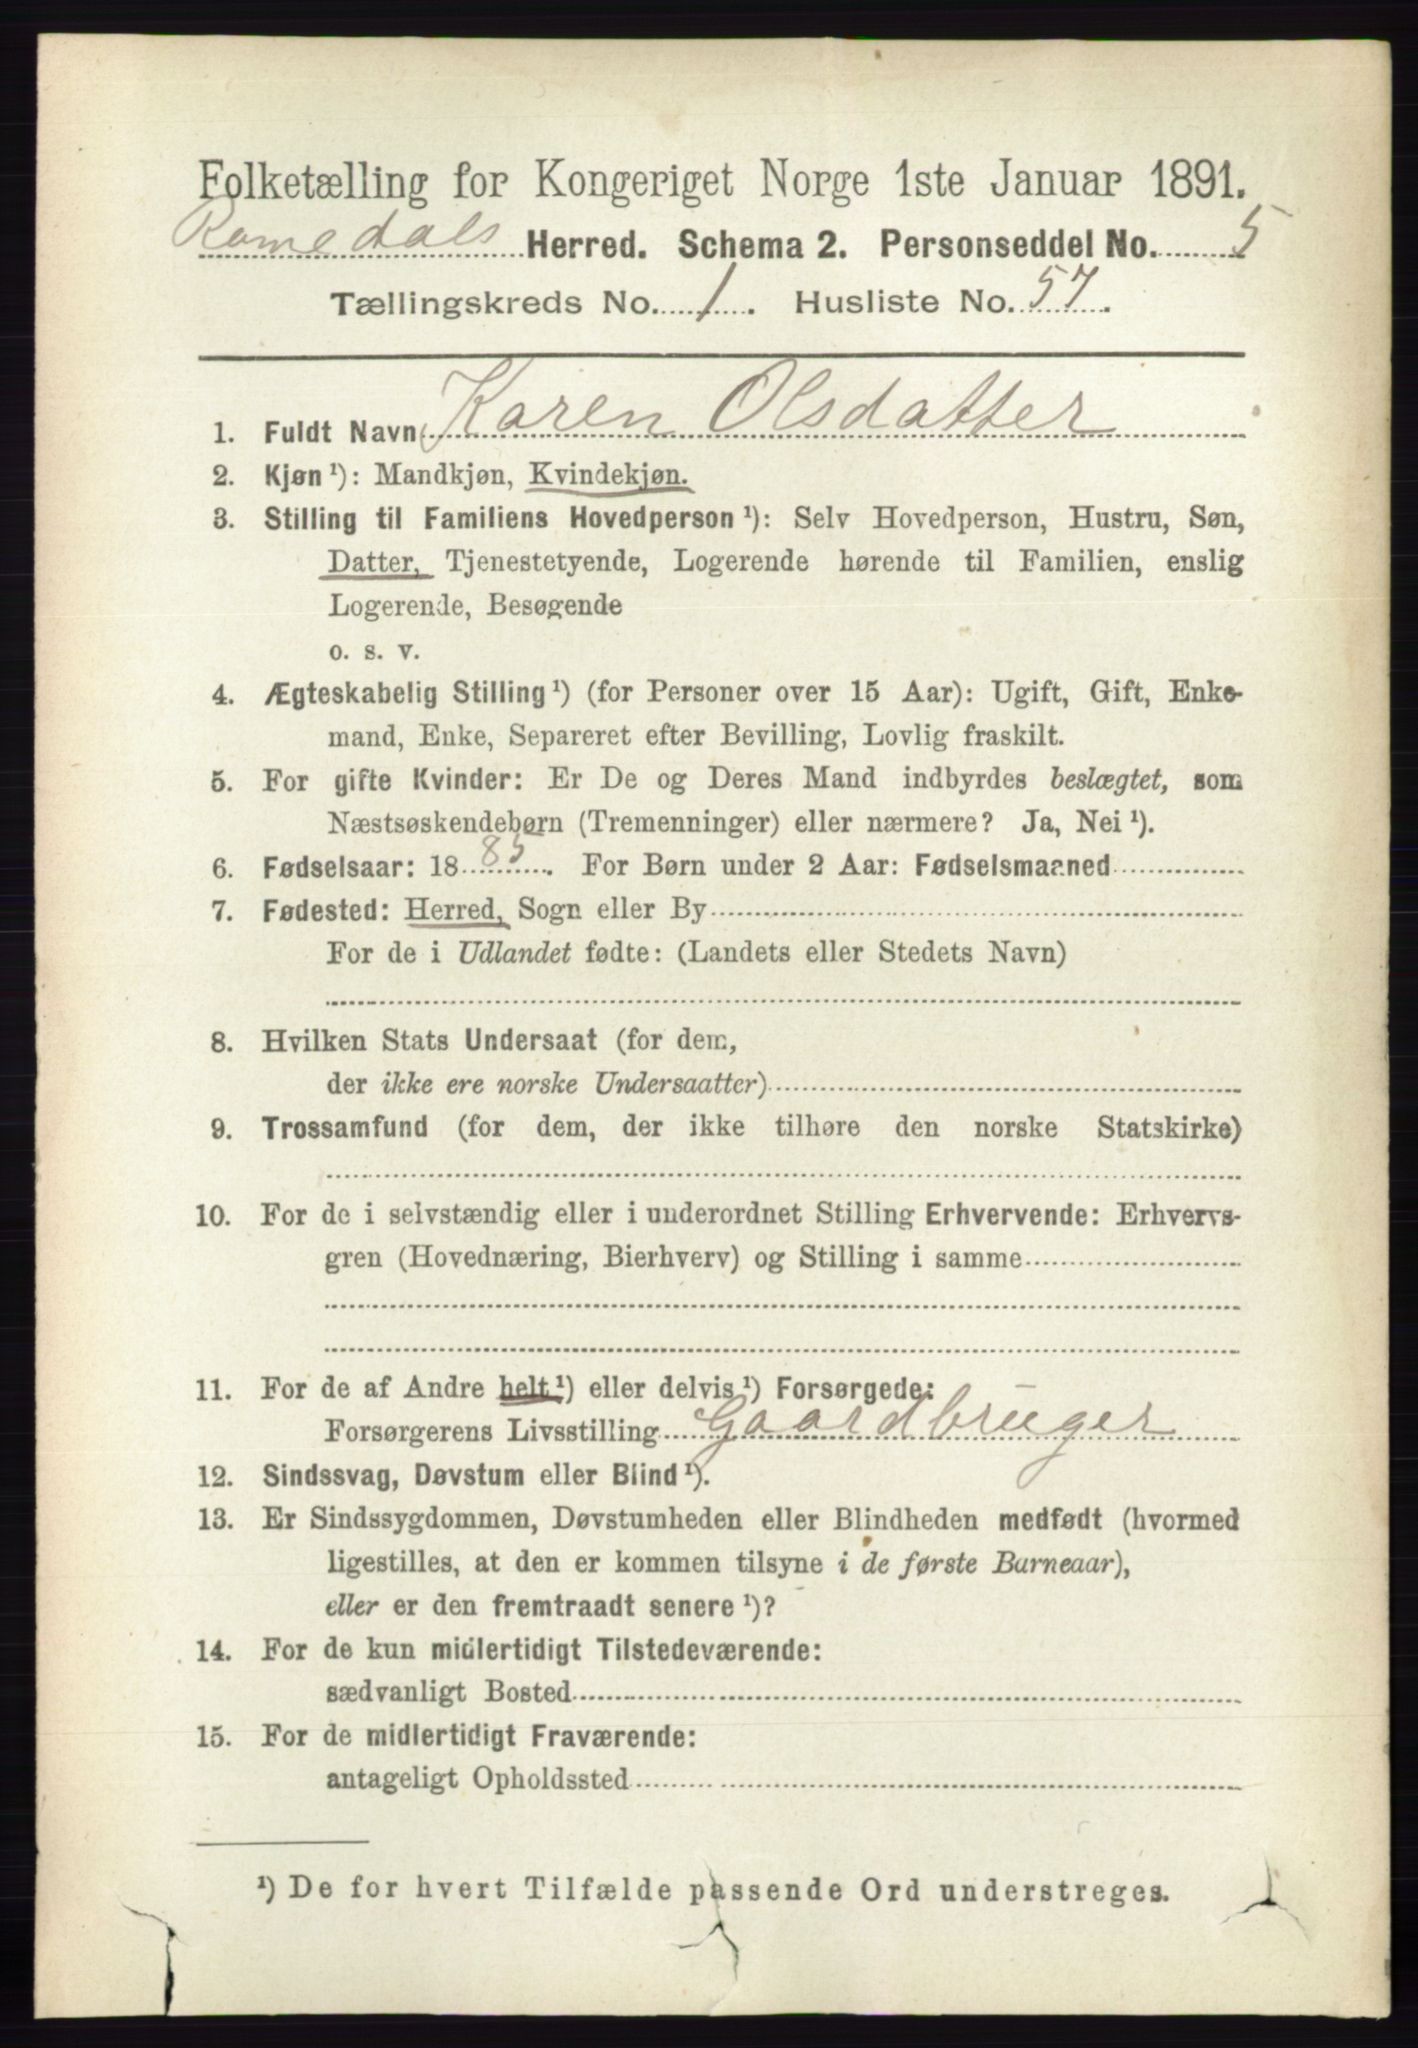 Folketælling for Kongeriget Norge 1ste Januar 1891.
Romedals Herred. Schema 2. Personseddel No. 5
Tællingskreds No. 1. Husliste No. 57.
1. Fuldt Navn Karen Olsdatter
2. Kjøn ¹): Mandkjøn, Kvindekjøn.
3. Stilling til Familiens Hovedperson ¹): Selv Hovedperson, Hustru, Søn,
Datter, Tjenestetyende, Logerende hørende til Familien, enslig
Logerende, Besøgende
o. s. v.
4. Ægteskabelig Stilling ¹) (for Personer over 15 Aar): Ugift, Gift, Enke-
mand, Enke, Separeret efter Bevilling, Lovlig fraskilt.
5. For gifte Kvinder: Er De og Deres Mand indbyrdes beslægtet, som
Næstsøskendebørn (Tremenninger) eller nærmere? Ja, Nei ¹).
6. Fødselsaar: 1885. For Børn under 2 Aar: Fødselsmaaned
7. Fødested: Herred, Sogn eller By
For de i Udlandet fødte: (Landets eller Stedets Navn)
8. Hvilken Stats Undersaat (for dem,
der ikke ere norske Undersaatter)
9. Trossamfund (for dem, der ikke tilhøre den norske Statskirke)
10. For de i selvstændig eller i underordnet Stilling Erhvervende: Erhvervs-
gren (Hovednæring, Bierhverv) og Stilling i samme
11. For de af Andre helt ¹) eller delvis ¹) Forsørgede:
Forsørgerens Livsstilling Gaardbruger
12. Sindssvag, Døvstum eller Blind ¹).
13. Er Sindssygdommen, Døvstumheden eller Blindheden medfødt (hvormed
ligestilles, at den er kommen tilsyne i de første Barneaar),
eller er den fremtraadt senere ¹)?
14. For de kun midlertidigt Tilstedeværende:
sædvanligt Bosted
15. For de midlertidigt Fraværende:
antageligt Opholdssted
¹) De for hvert Tilfælde passende Ord understreges.